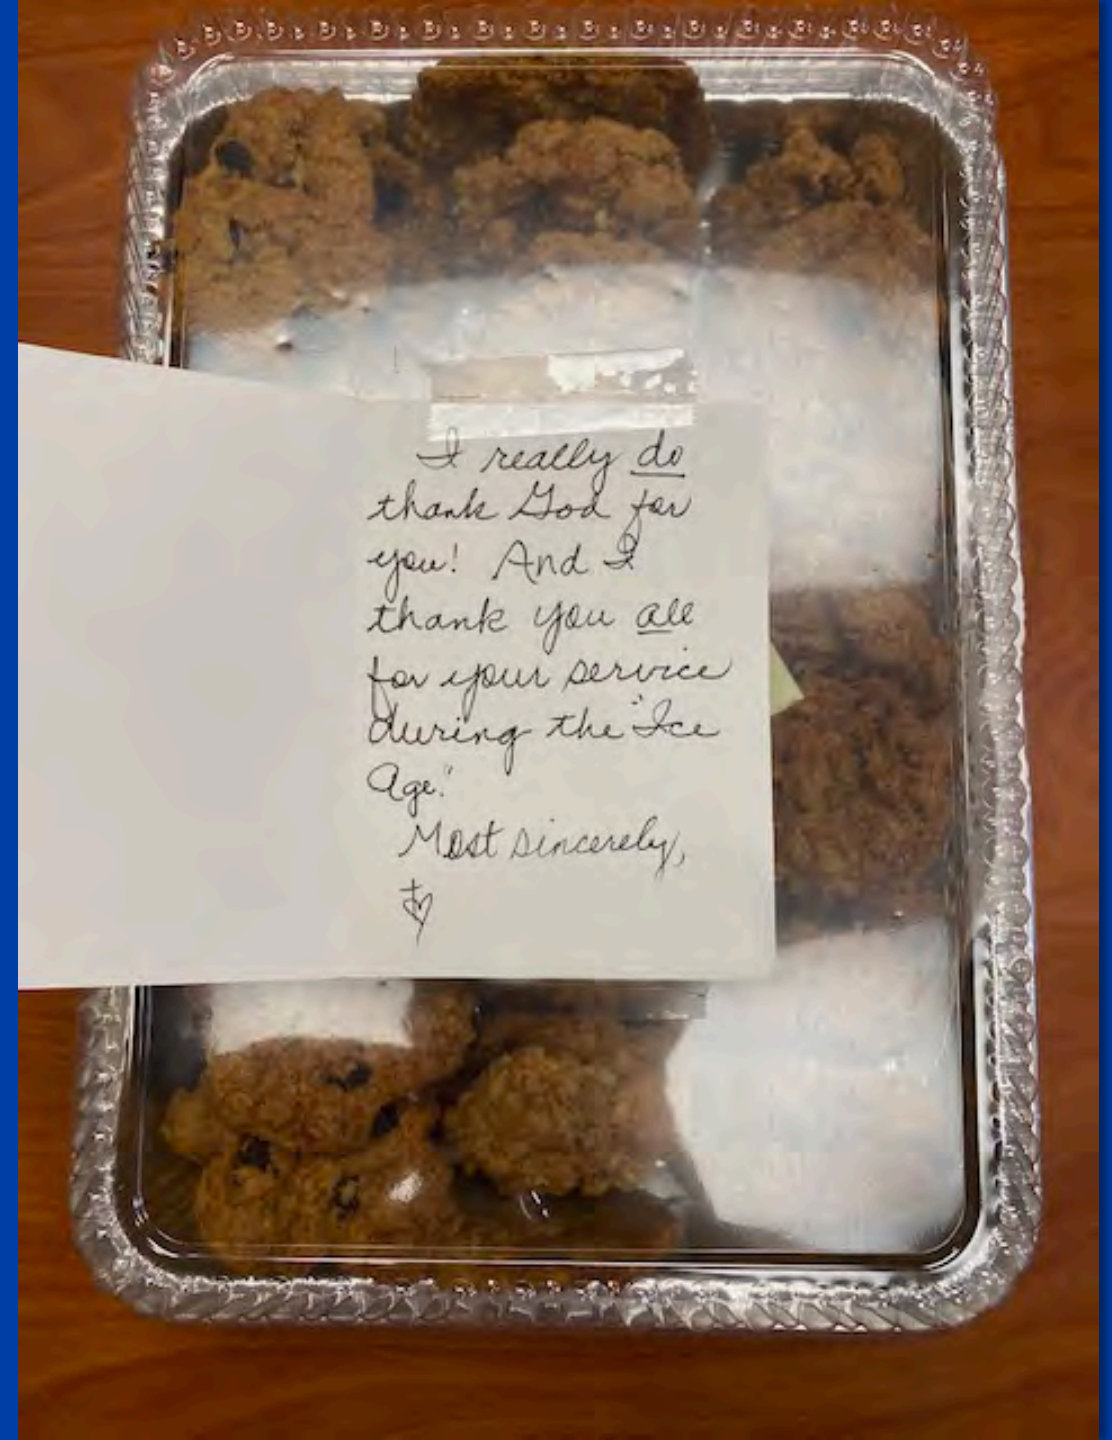 I really do
thank God for
you! And I
thank you all
for your service
during the "Ice
Age."
Most sincerely,